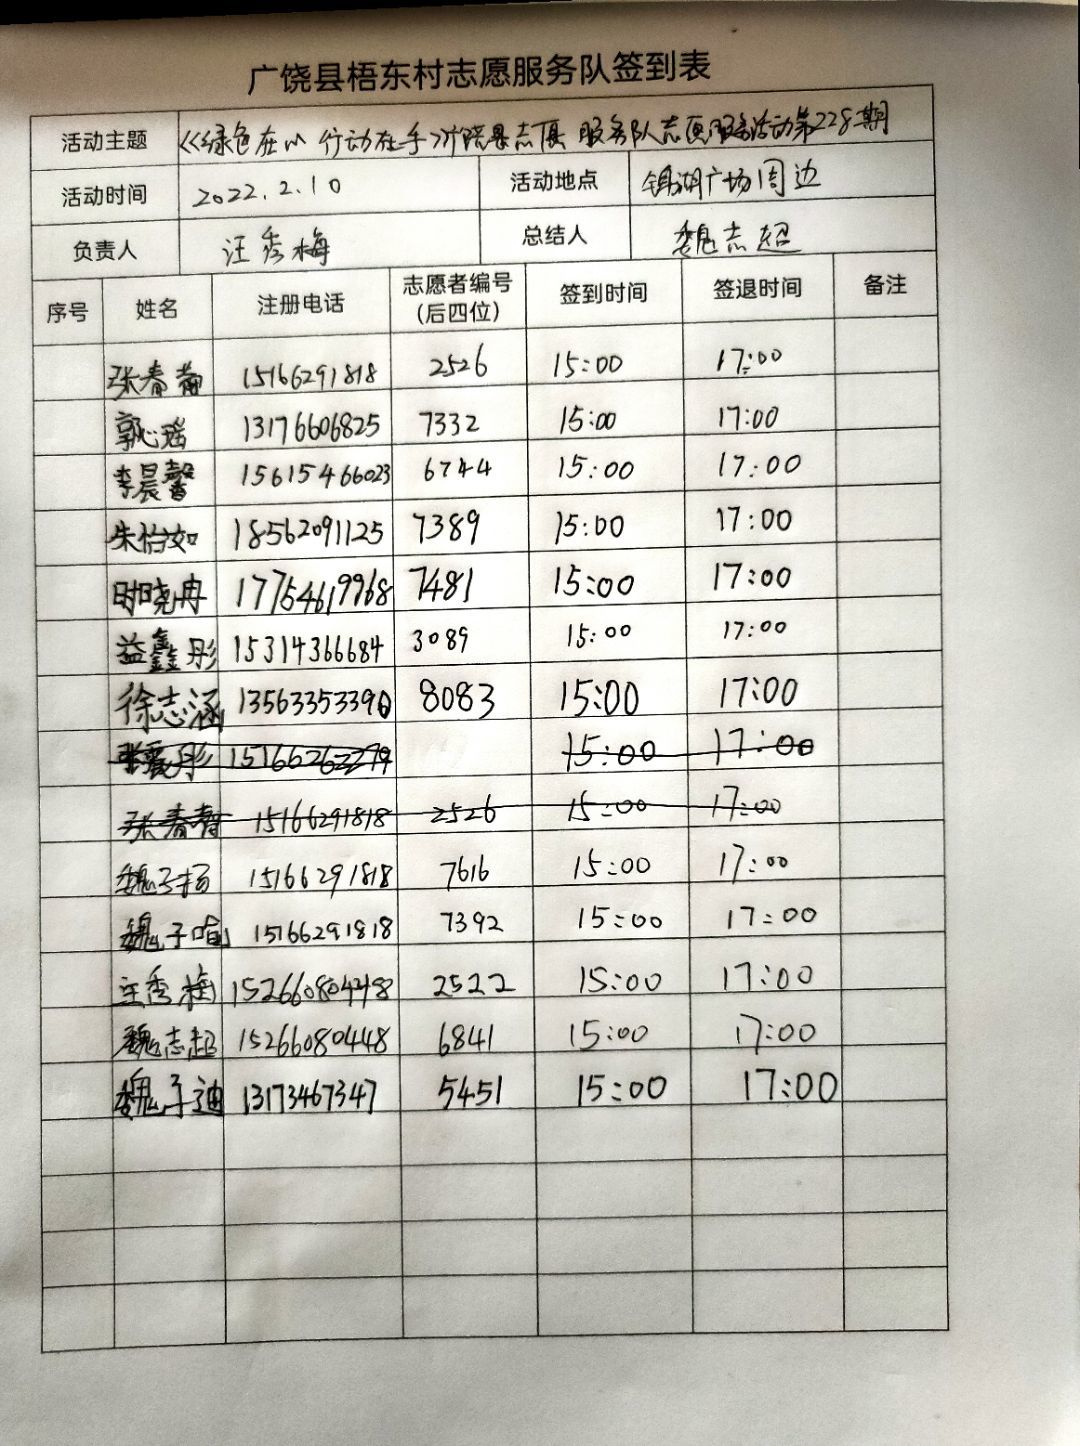 广饶县梧东村志愿服务队签到表
活动主题 《绿色在心 行动在手》广饶县志愿服务队志愿服务活动第228期
活动时间 2022.2.10 活动地点 锦湖广场周边
负责人 汪秀梅 总结人 魏志超
序号 姓名 注册电话 志愿者编号(后四位) 签到时间 签退时间 备注
张春 15166291818 2526 15:00 17:00
郭心瑶 13176606825 7332 15:00 17:00
李晨馨 15615466023 6744 15:00 17:00
朱怡如 18562091125 7389 15:00 17:00
时晓冉 17754619968 7481 15:00 17:00
益鑫彤 15314366684 3089 15:00 17:00
徐志涵 13563353390 8083 15:00 17:00
张 彤 15166262279 15:00 17:00
张春 15166291818 2526 15:00 17:00
魏子扬 15166291818 7616 15:00 17:00
魏子喧 15166291818 7392 15:00 17:00
汪秀梅 2522 15:00 17:00
魏志超 15266080448 6841 15:00 17:00
魏子迪 13173467347 5451 15:00 17:00